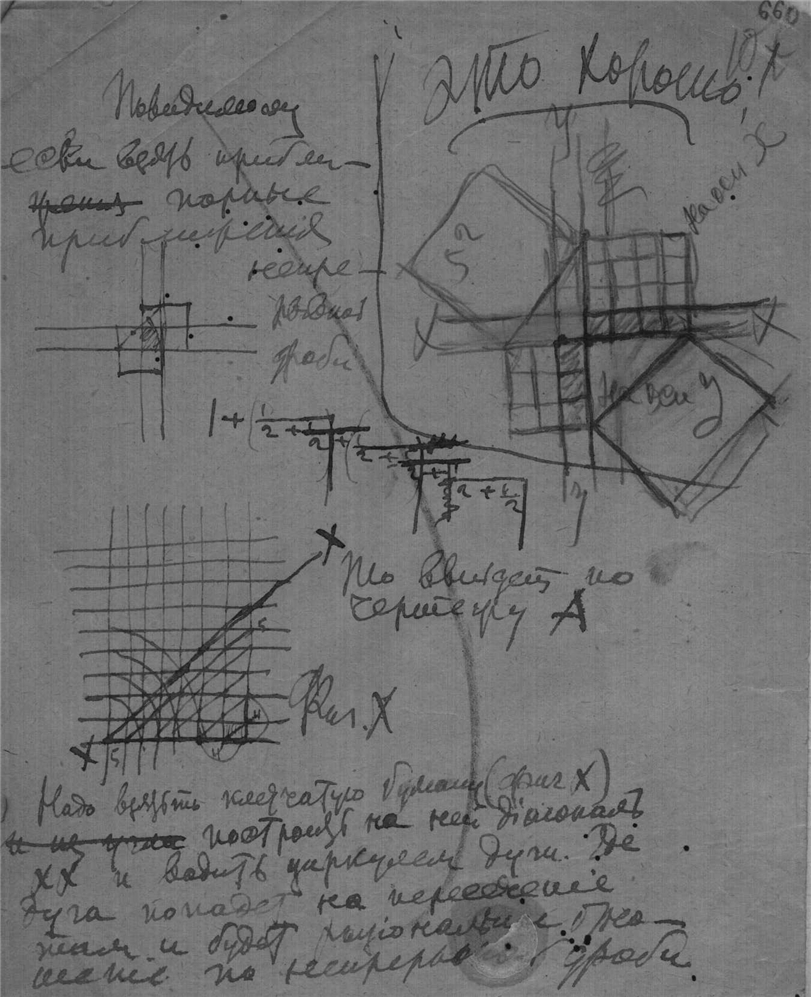 660
Это хорошо,
Повидимому
если взять прибли-
порные
приближения
непре-
рывной
дроби
на оси X
y
5²
X
X
на оси y
y
1 + (1/2 + 1/2) + (1/2 + 1/2
2 + 1/2
X
То выйдет по
чертежу А
5
Фиг. X
X
5
Надо взять клетчатую бумагу (фиг X)
построить на ней діагональ
XX и водить циркулем дуги. Где
дуга попадет на пересеченіе
там и будет раціональное отно-
шеніе по непрерывной дроби.